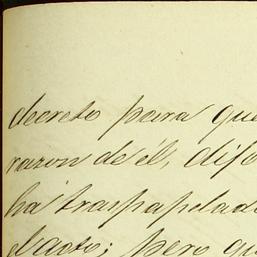 decreto para que
razon de él, difo
ha traspapelado
dacto; pero qu